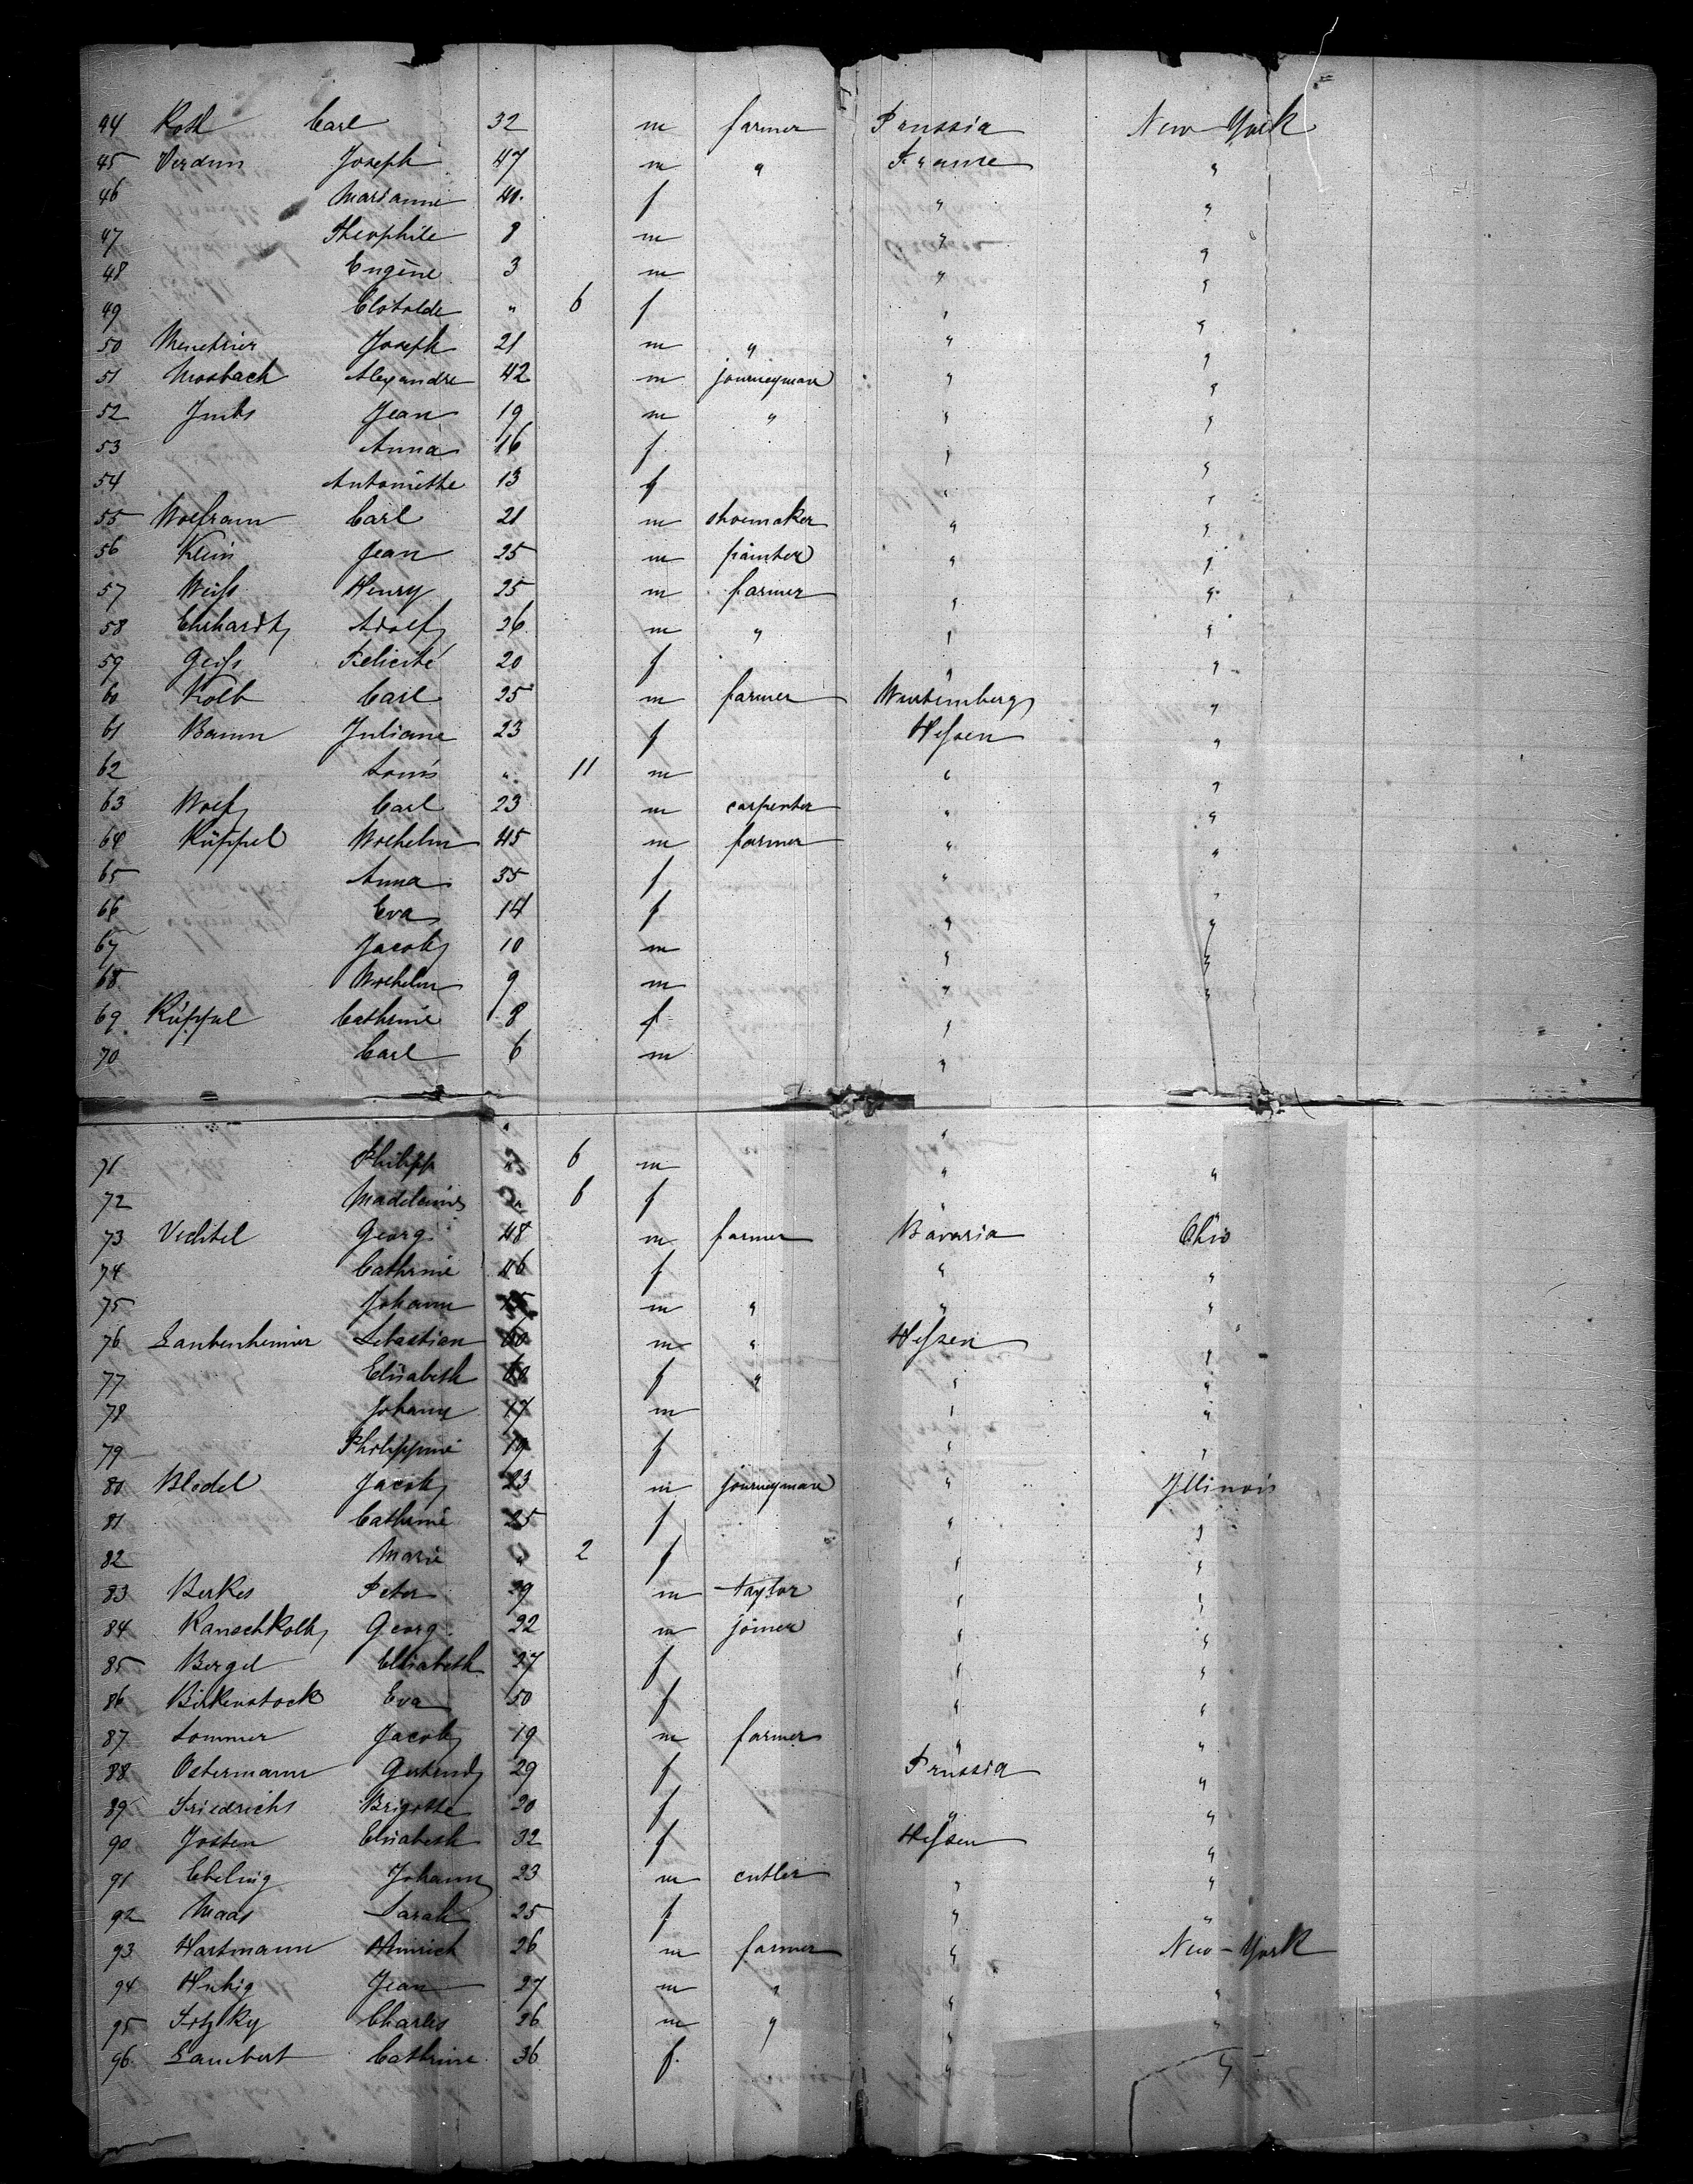 94 Roth Carl 32 m farmer Prussia New-York
45 Verdun Joseph 47 m " France "
46 Marianne 40. f " "
47 Theophile 8 m " "
48 Eugène 3 m " "
49 Clotolde " 6 f " "
50 Menetrier Joseph 21 m " " "
51 Mosbach Alexandre 42 m journeyman " "
52 Jean 19 m " " "
53 Anna 16 f " "
54 Antoinette 13 f " "
55 Wolfram Carl 21 m shoemaker " "
56 Klein Jean 25 m painter " "
57 Weiss Henry 25 m farmer " "
58 Ehrhardt Adolf 26 m " " "
59 Geiss Felicité 20 f " "
60 Kolb Carl 25 m farmer Wurtemberg "
61 Baum Juliane 23 f Hessen "
62 Louis " 11 m " "
63 Wolf Carl 23 m carpenter " "
64 Küppel Wilhelm 45 m farmer " "
65 Anna 35 f " "
66 Eva 14 f " "
67 Jacob 10 m " "
68 Wilhelm 9 m " "
69 Küppel Cathrine 8 f "
70 Carl 6 m "
71 Philipp " 6 m " "
72 Madeleine " 6 f " "
73 Vechtel Georg 48 m farmer Bavaria Ohio
74 Cathrine 46 f " "
75 Johann m " " "
76 Laubenheimer Sebastian m " Hessen "
77 Elisabeth f " " "
78 Johann 17 m " "
79 Philippine 19 f " "
80 Bledel Jacob 23 m journeyman " Illinois
81 Cathrine 25 f " "
82 Marie " 2 f " "
83 Berkes Peter 29 m taylor " "
84 Ranschkolb Georg 22 m joiner " "
85 Bergel Elisabeth 27 f " "
86 Birkenstock Eva 50 f " "
87 Sommer Jacob 19 m farmer " "
88 Ostermann Gertrud 29 f Prussia "
89 Friedrichs Brigitte 20 f " "
90 Josten Elisabeth 32 f Hessen "
91 Ebeling Johann 23 m cutler " "
92 Maas Sarah 25 f " "
93 Hartmann Heinrich 26 m farmer " New-York
94 Huhig Jean 27 m " " "
95 Charles 26 m " " "
96 Lambert Cathrine 36 f. " "